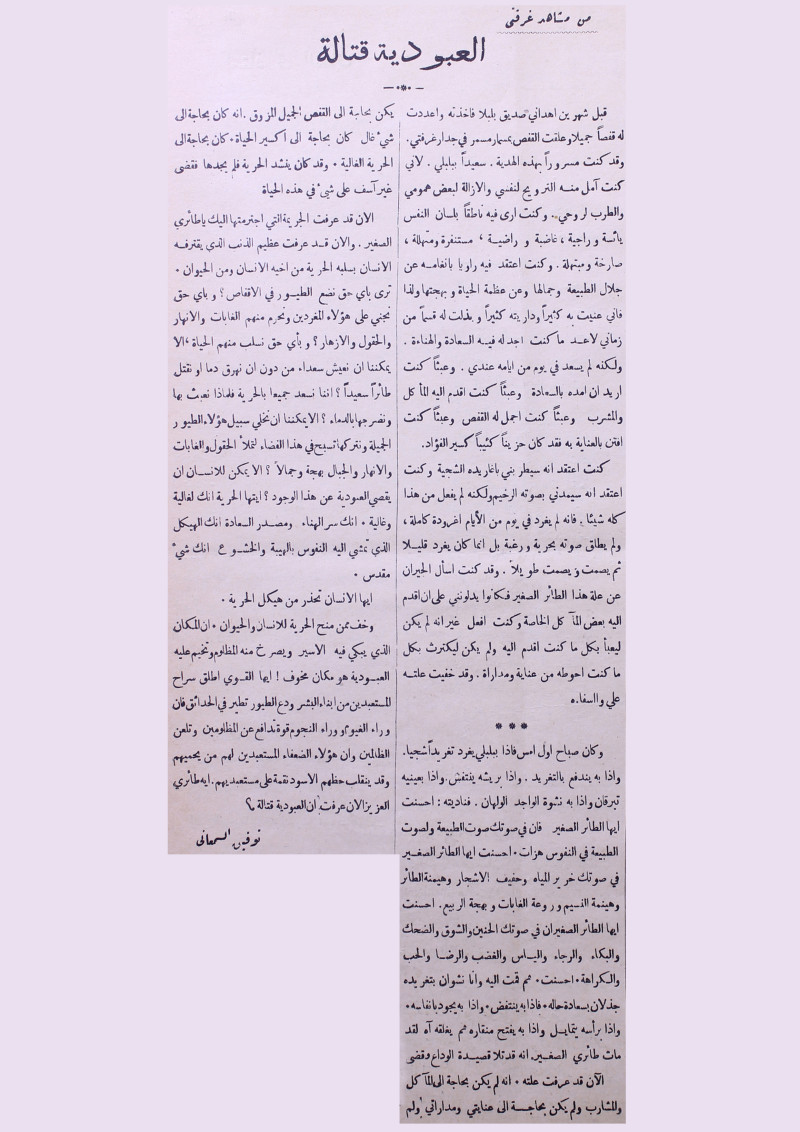 من مشاهد غرفتي
العبودية قتالة
قبل شهرين اهداني صديق بلبلا فاخذته واعددت
له قفصاً جميلا وعلقت القفص بمسمار مسمر في جدار غرفتي.
وقد كنت مسروراً بهذه الهدية . سعيداً ببلبلي . لاني
كنت آمل منه الترويح لنفسي والازالة لبعض همومي
والطرب لروحي. وكنت ارى فيه ناطقاً بلسان النفس
يائسة وراجية ، غاضبة و راضية ، مستنفرة ومتهللة ،
صارخة ومبتهلة . وكنت اعتقد فيه راويا بانغامه عن
جلال الطبيعة وجمالها وعن عظمة الحياة وبهجتها ولذا
فاني عنيت به كثيراً وداريته كثيراً و بذلت له قسماً من
زماني لاعد ما كنت اجد له فيه السعادة والهناءة .
ولكنه لم يسعد في يوم من ايامه عندي . وعبثاً كنت
اريد ان امده بالسعادة وعبثاً كنت اقدم اليه المأكل
والمشرب وعبثاً كنت اجمل له القفص وعبثاً كنت
افتن بالعناية به فقد كان حزيناً كئيباً كسير الفؤاد.
كنت اعتقد انه سيطربني باغاريده الشجية وكنت
اعتقد انه سيمدني بصوته الرخيم ولكنه لم يفعل من هذا
كله شيئا . فانه لم يغرد في يوم من الأيام اغرودة كاملة ،
ولم يطلق صوته بحرية و رغبة بل انما كان يغرد قليلا
ثم يصمت و يصمت طويلاً . وقد كنت اسأل الجيران
عن علة هذا الطائر الصغير فكانوا يدلونني على ان اقدم
اليه بعض المآكل الخاصة وكنت افعل غير انه لم يكن
ليعبأ بكل ما كنت اقدم اليه ولم يكن ليكترث بكل
ما كنت احوطه من عناية ومداراة . وقد خفيت علته
علي وااسفاه
* * *
وكان صباح اول امس فاذا ببلبلي يغرد تغريداً شجيا.
واذا به يندفع بالتغريد . واذا بريشه ينتفش. واذا بعينيه
تبرقان واذا به نشوة الواجد الولهان . فناديته : احسنت
ايها الطائر الصغير فان في صوتك صوت الطبيعة ولصوت
الطبيعة في النفوس هزات . احسنت ايها الطائر الصغير
في صوتك خرير المياه وحفيف الاشجار وهيمنة الطائر
وهينمة النسيم و روعة الغابات و بهجة الربيع. احسنت
ايها الطائر الصغير ان في صوتك الحنين والشوق والضحك
والبكاء والرجاء والياس والغضب والرضا والحب
والكراهة . احسنت . ثم قمت اليه وانا نشوان بتغريده
جذلان بسعادة حاله . فاذا به ينتفض . واذا به يجود بانفاسه .
واذا برأسه يتمايل واذا به يفتح منقاره ثم يغلقه آه لقد
مات طائري الصغير. انه قد تلا قصيدة الوداع وقضى
الآن قد عرفت علته . انه لم يكن بحاجة الى المآكل
والمشارب ولم يكن بحاجة الى عنايتي ومداراتي ولم
يكن بحاجة الى القفص الجميل المزوق . انه كان بحاجة الى
شيء غال كان بحاجة الى أكسير الحياة . كان بحاجة الى
الحرية الغالية . وقد كان ينشد الحرية فلم يجدها فقضى
غير آسف على شيء في هذه الحياة
الان قد عرفت الجريمة التي اجترمتها اليك يا طائري
الصغير . والان قد عرفت عظيم الذنب الذي يقترفه
الانسان بسلبه الحرية من اخيه الانسان ومن الحيوان .
ترى باي حق نضع الطيور في الاقفاص ؟ و باي حق
نجني على هؤلاء المغردين ونحرم منهم الغابات والانهار
والحقول والازهار ؟ و بأي حق نسلب منهم الحياة ، الا
يمكننا ان نعيش سعداء من دون ان نهرق دما او نقتل
طائراً سعيداً ؟ اننا نسعد جميعا بالحرية فلماذا نعبث بها
ونضرجها بالدماء ؟ الا يمكننا ان نخلي سبيل هؤلاء الطيور
الجميلة ونتركها تسبح في هذا الفضاء لتملأ الحقول والغابات
والانهار والجبال بهجة وجمالاً ؟ الا يمكن للانسان ان
يقصي العبودية عن هذا الوجود ؟ ايتها الحرية انك لغالية
وغالية . انك سر الهناء ومصدر السعادة انك الهيكل
الذي تمشي اليه النفوس بالهيبة والخشوع انك شيء
مقدس .
ايها الانسان تحذر من هيكل الحرية .
وخف ممن منح الحرية للانسان والحيوان . ان المكان
الذي يبكي فيه الاسير ويصرخ منه المظلوم وتخيم عليه
العبودية هو مكان مخوف ! ايها القوي اطلق سراح
المستعبدين من ابناء البشر ودع الطيور تطير في الحدائق فان
وراء الغيوم وراء النجوم قوة تدافع عن المظلومين وتلعن
الظالمين وان هؤلاء الضعفاء المستعبدين لهم من يحميهم
وقد ينقلب حظهم الاسود نقمة على مستعبديهم. ايه طائري
العزيز الان عرفت ان العبودية قتالة
توفيق السمعاني